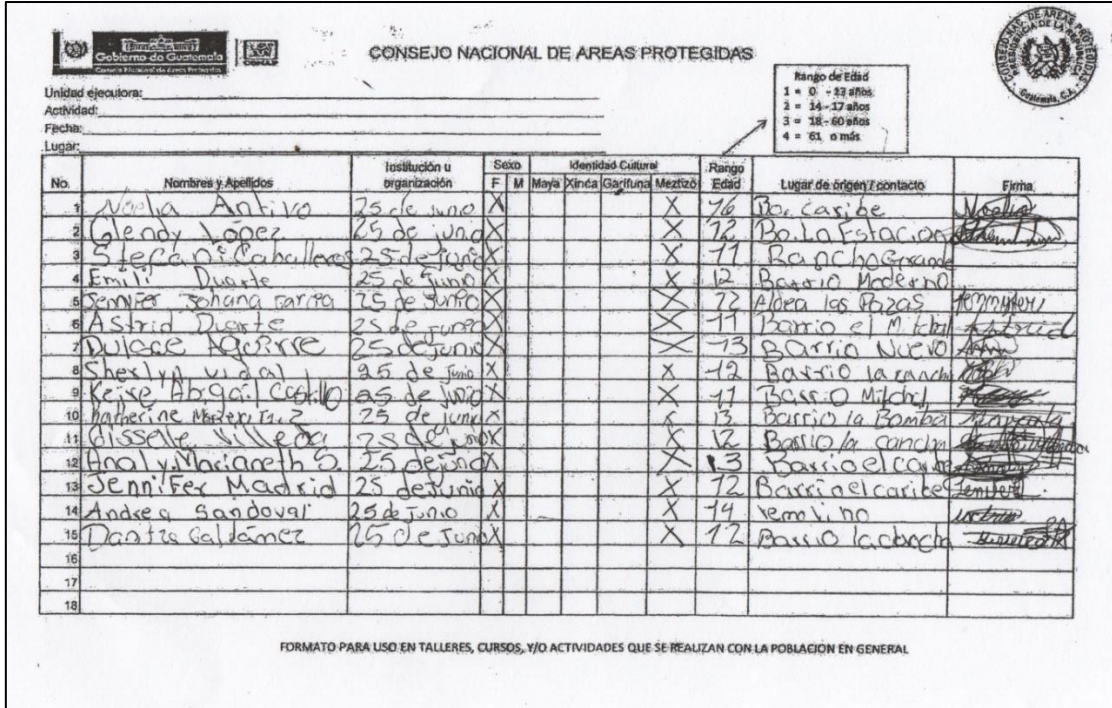 Gobierno de Guatemala
Consejo Nacional de Areas Protegidas
CONAP
CONSEJO NACIONAL DE AREAS PROTEGIDAS
Rango de Edad
1 = 0 - 13 años
2 = 14 - 17 años
3 = 18 - 60 años
4 = 61 o más
Unidad ejecutora:
Actividad:
Fecha:
Lugar:
No. Nombres y Apellidos Institución u organización Sexo F M Identidad Cultural Maya Xinca Garifuna Meztizo Rango Edad Lugar de origen / contacto Firma
1 Noelia 25 de junio X X 16 Bo. caribe Noelia
2 Glendy López 25 de junio X X 12 Bo. La Estacion
3 Stefani Caballeros 25 de junio X X 11 Rancho Grande
4 Emili Duarte 25 de Junio X X 12 Barrio Moderno
5 Jennifer Johana Garcia 25 de Junio X X Aldea las Pozas
6 Astrid Duarte 25 de Junio X X 11 Barrio el Mitchel Astrid
7 Dulce Aguirre 25 de junio X X 13 Barrio Nuevo
8 Sherlyn vidal 25 de Junio X X 12 Barrio la cancha
9 Abigail Castillo 25 de junio X X 11 Barrio Mitchel
10 Katherine 25 de junio X X 13 Barrio la Bomba
11 Gisselle Villeda 25 de junio X X 12 Barrio la cancha
12 Analy Marianeth S. 25 de junio X X 13 Barrio el caribe
13 Jennifer Madrid 25 de Junio X X 12 Barrio el caribe
14 Andrea Sandoval 25 de Junio X X 14
15 Galdámez 25 de Junio X X 12 Barrio la cancha
16
17
18
FORMATO PARA USO EN TALLERES, CURSOS, Y/O ACTIVIDADES QUE SE REALIZAN CON LA POBLACIÓN EN GENERAL